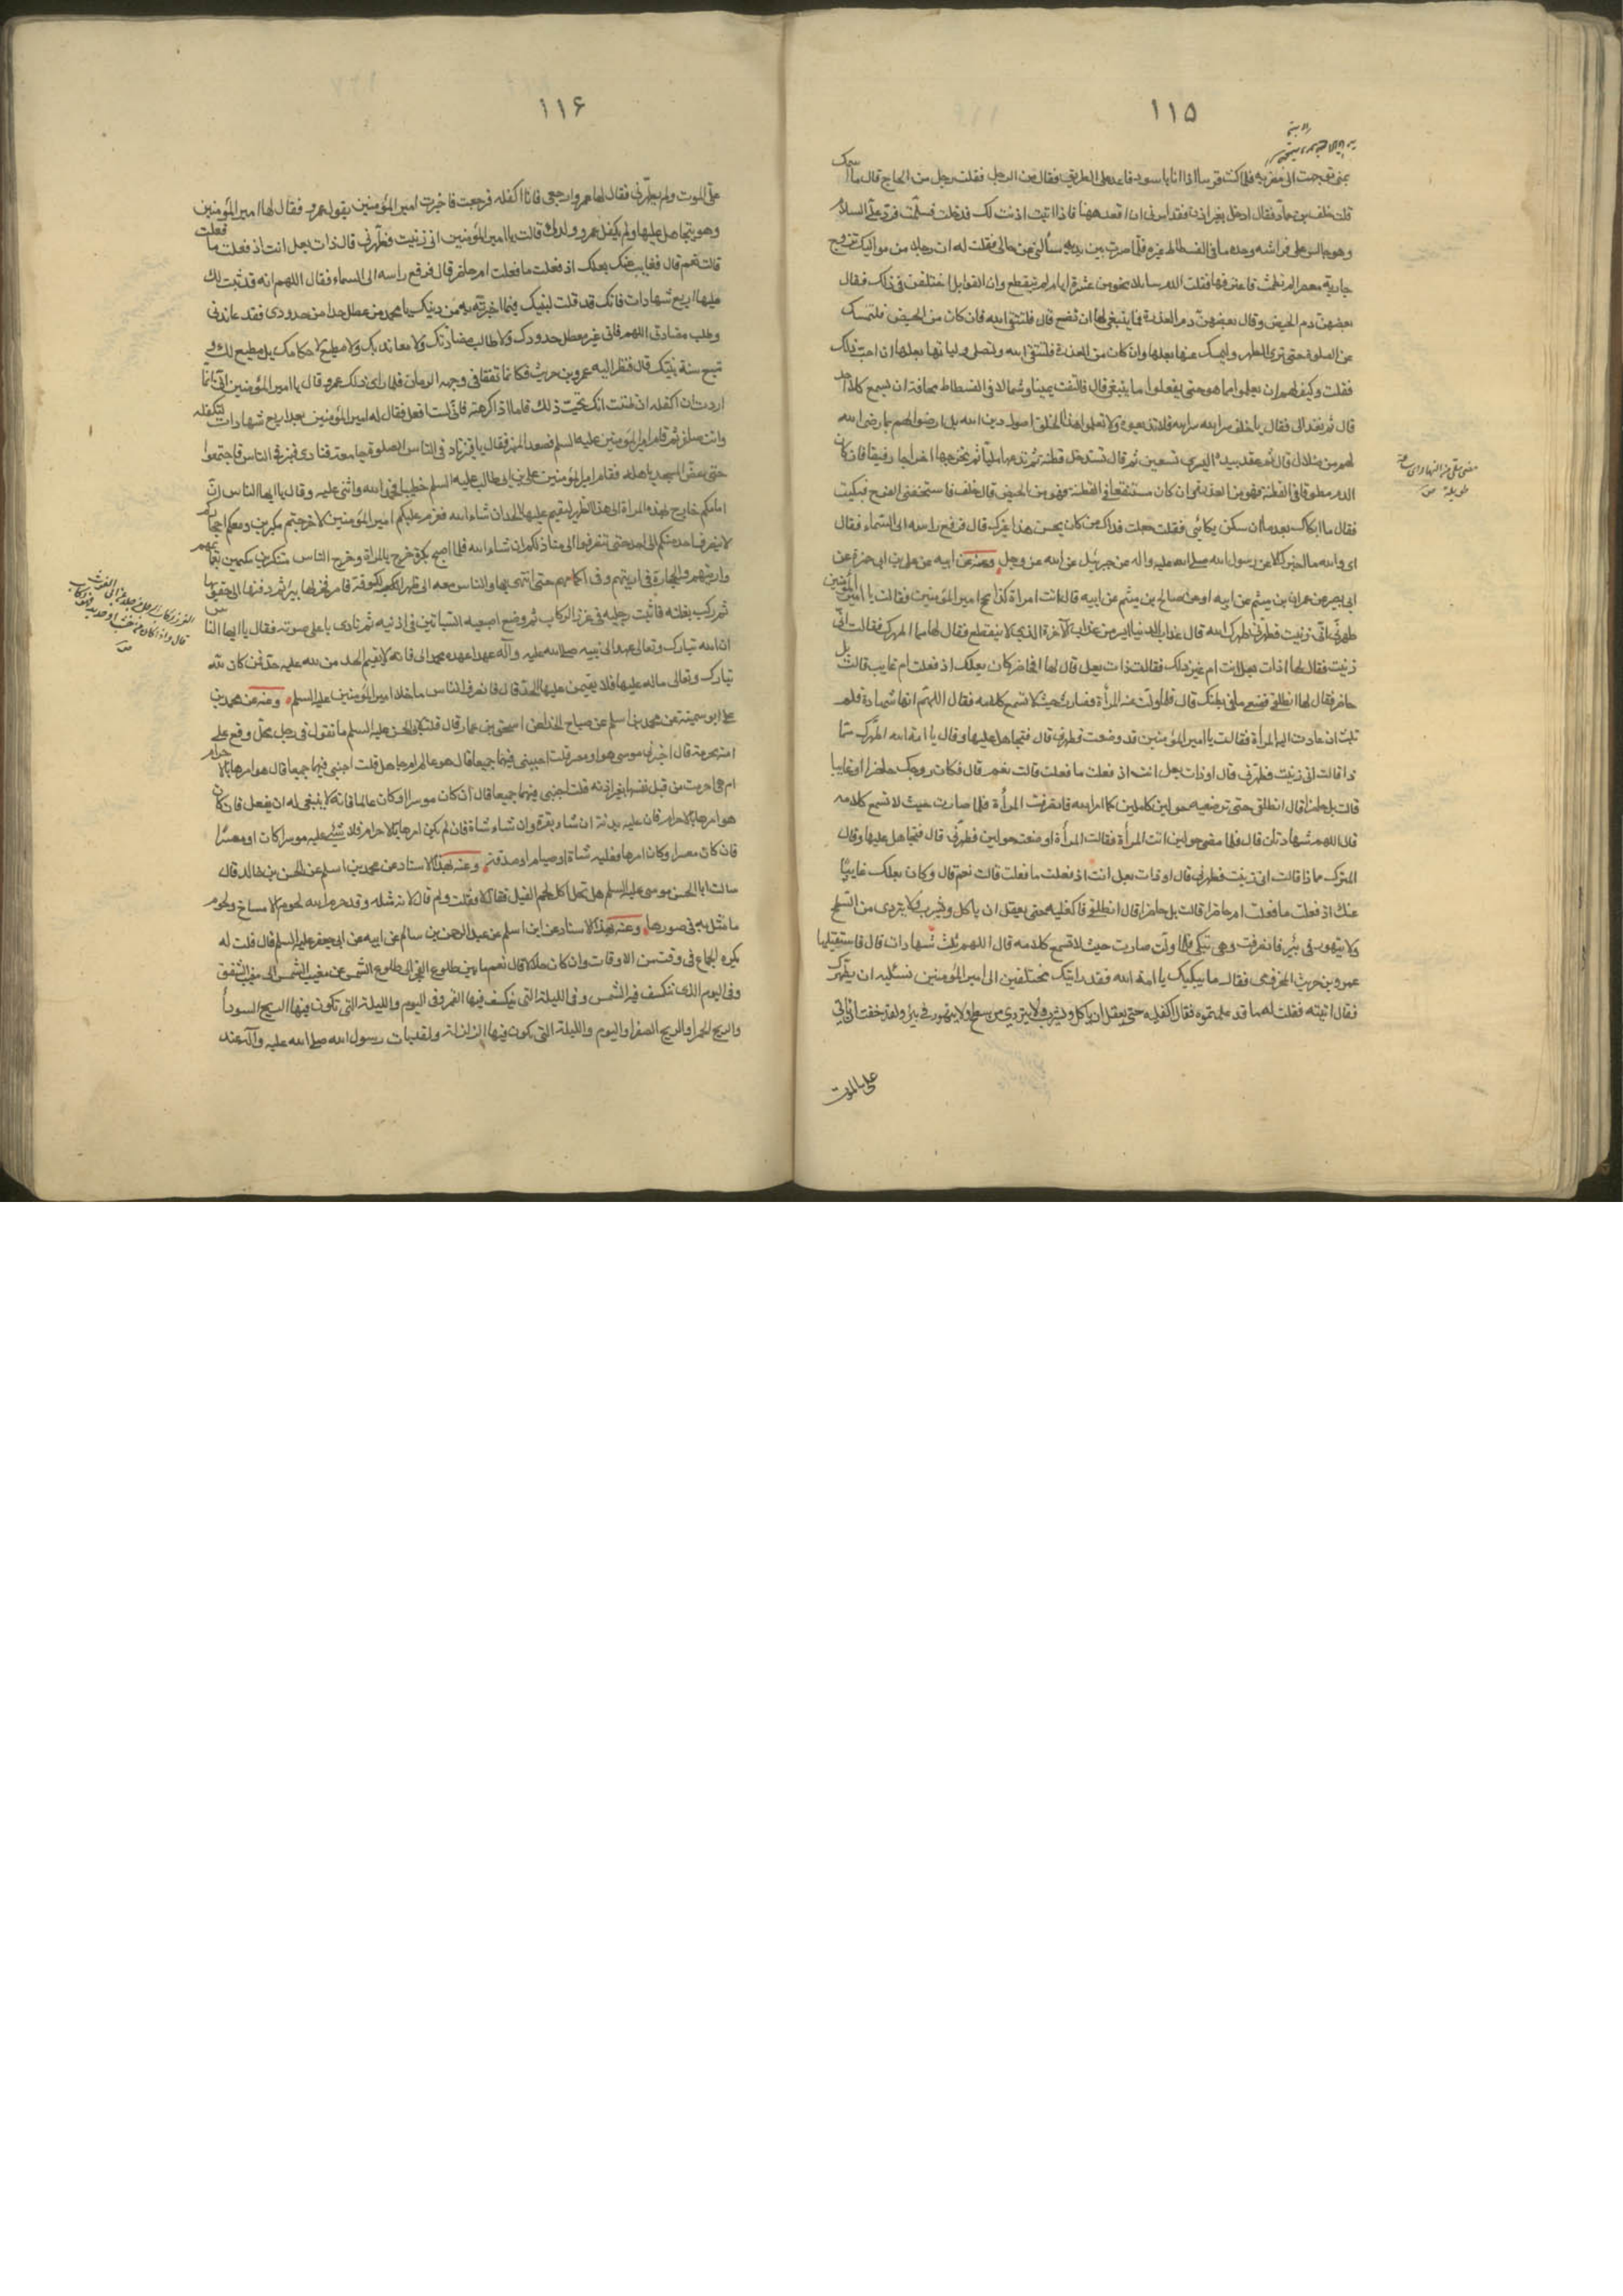 ١١۵
بمنى فوجهت الى مضربه فلما كنت قريبا اذا انا باسود قاعد على الطريق فقال من الرجل فقلت رجل من الحاج قال ما اسمك
قلت خلف بن حماد فقال ادخل بغير اذن فقد امرنى ان اقعد ههنا فاذا اتيت اذنت لك فدخلت فسلمت فرد علىّ السلام
وهو جالس على فراشه وحده ما فى الفسطاط غيره فلما صرت بين يديه سألنى عن حالى فقلت له ان رجلا من مواليك تزوج
جارية معصرا لم تطمث فاعترفها فقلت الدم سايلا نحو من عشرة ايام لم ينقطع وان القوابل اختلفن فى ذلك فقال
بعضهن دم الحيض وقال بعضهن دم العذرة فما ينبغى لها ان تصنع قال فلتتق الله فان كان من الحيض فلتمسك
عن الصلوة حتى ترى الطهر وليمسك عنها بعلها وان كان من العذرة فلتتق الله ولتصل ولياتها بعلها ان احب ذلك
فقلت وكيف لهم ان يعلموا ما هو حتى يفعلوا ما ينبغى قال فالتفت يمينا وشمالا فى الفسطاط مخافة ان يسمع كلامه احد
قال ثم نهد الى فقال يا خلف سر الله سر الله فلا تذيعوه ولا تعلموا هذا الخلق اصول دين الله بل ارضوا لهم بما رضى الله
لهم من ضلال قال ثم عقد بيده اليسرى تسعين ثم قال تستدخل قطنة ثم تدعها مليا ثم تخرجها اخراجا رفيقا فان كان
الدم مطوقا فى القطنة فهو من العذرة وان كان مستنقعا فى القطنة فهو من الحيض قال خلف فاستخفنى الفرح فبكيت
فقال ما ابكاك بعد ما ان سكن بكائى فقلت جعلت فداك من كان يحسن هذا غيرك قال فرفع راسه الى السماء فقال
اى والله ما اخبرك الا عن رسول الله صلى الله عليه واله عن جبرئيل عن الله عز وجل وعنه عن ابيه عن على بن ابى حمزة عن
ابى بصير عن عمران بن ميثم عن ابيه او عن صالح بن ميثم عن ابيه قال اتت امراة امير المؤمنين فقالت يا امير المؤمنين
طهرنى انى زنيت فطهرنى طهرك الله قال عذاب الدنيا ايسر من عذاب الآخرة الذى لا ينقطع فقال لها مما اطهرك فقالت انى
زنيت فقال لها اذات بعل انت ام غير ذلك فقالت ذات بعل قال لها افحاضر كان بعلك اذ فعلت ام غايب قالت بل
حاضر فقال لها انطلقى فضعى ما فى بطنك قال فلما ولت عنه المرأة فصارت حيث لا تسمع كلامه فقال اللهم انها شهادة فلم
تلبث ان عادت اليه المرأة فقالت يا امير المؤمنين قد وضعت فطهرنى قال فتجاهل عليها وقال يا امة الله اطهرك مما
ذا قالت انى زنيت فطهرنى قال اوذات بعل انت اذ فعلت ما فعلت قالت نعم قال فكان زوجك حاضرا او غايبا
قالت بل حاضرا قال انطلقى حتى ترضعيه حولين كاملين كما امر الله فانصرفت المرأة فلما صارت حيث لا تسمع كلامه
قال اللهم شهادتان قال فلما مضى حولين اتت المرأة فقالت المرأة ارضعته حولين فطهرنى قال فتجاهل عليها وقال
اطهرك مماذا قالت انى زنيت فطهرنى قال اوذات بعل انت اذ فعلت ما فعلت قالت نعم قال وكان بعلك غايبا
عنك اذ فعلت ما فعلت ام حاضرا قالت بل حاضرا قال انطلقى فاكفليه حتى يعقل ان ياكل ويشرب ولا يتردى من السطح
ولا يتهور فى بئر فانصرفت وهى تبكى فلما ولت صارت حيث لا تسمع كلامه قال اللهم ثلث شهادات قال فاستقبلها
عمرو بن حريث المخزومى فقال ما يبكيك يا امة الله فقد رايتك تختلفين الى امير المؤمنين تسئليه ان يطهرك
فقال اتيته فقلت له ما قد علمتموه فقال اكفليه حتى يعقل ان ياكل ويشرب ولا يتردى من سطح ولا يتهور فى بئر ولقد خفت ان ياتى
على الموت
١١۶
على الموت ولم يطهرنى فقال لها عمرو ارجعى فانا اكفله فرجعت فاخبرت امير المؤمنين بقول عمرو فقال لها امير المؤمنين
وهو يتجاهل عليها ولم يكفل عمرو ولدك قالت يا امير المؤمنين انى زنيت فطهرنى قال ذات بعل انت اذ فعلت ما فعلت
قالت نعم قال فغايب عنك بعلك اذ فعلت ما فعلت ام حاضر قال فرفع راسه الى السماء فقال اللهم انه قد ثبت لك
عليها اربع شهادات فانك قد قلت لنبيك فيما اخبرته به من دينك يا محمد من عطل حدا من حدودى فقد عاندنى
وطلب مضادتى اللهم فانى غير معطل حدودك ولا طالب مضادتك ولا معاند بك ولا مضيع لاحكامك بل مطيع لك و
تبع سنة نبيك قال فنظر اليه عمرو بن حريث فكانما تفقأ فى وجهه الرمان فلما راى ذلك عمرو قال يا امير المؤمنين انى انما
اردت ان اكفله اذ ظننت انك تحب ذلك فاما اذا كرهته فانى لست افعل فقال له امير المؤمنين بعد اربع شهادات لتكفلنه
وانت صاغر ثم قام امير المؤمنين عليه السلم فصعد المنبر فقال يا قنبر ناد فى الناس الصلوة جامعة فنادى قنبر فى الناس فاجتمعوا
حتى غص المسجد باهله فقام امير المؤمنين على بن ابى طالب عليه السلم خطيبا فحمد الله واثنى عليه وقال يا ايها الناس ان
امامكم خارج بهذه المرأة الى هذا الظهر ليقيم عليها الحد ان شاء الله فعزم عليكم امير المؤمنين لا خرجتم مبكرين ومعكم احجاركم
لا يعرف احد منكم الى احد حتى تنصرفوا الى منازلكم ان شاء الله فلما اصبح بكرة خرج بالمرأة وخرج الناس متنكرين متلثمين بعمايمهم
وارديتهم والحجارة فى ارديتهم وفى اكمامهم حتى انتهى بها والناس معه الى ظهر الكوفة فامر فحفر لها بئر ثم دفنها الى حقويها
ثم ركب بغلته فاثبت رجليه فى غرز الركاب ثم وضع اصبعيه السبابتين فى اذنيه ثم نادى باعلى صوته فقال يا ايها الناس
ان الله تبارك وتعالى عهد الى نبيه صلى الله عليه وآله عهدا عهده محمد الى فانه لا يقيم الحد من لله عليه حد فمن كان لله
تبارك وتعالى ماله عليها فلا يقيمن عليها الحد قال فانصرف الناس ما خلا امير المؤمنين عليه السلم وعنه عن محمد بن
على ابو سمينة عن محمد بن اسلم عن صباح الحذا عن اسحق بن عمار قال قلت لابى الحسن عليه السلم ما تقول فى رجل محل وقع على
امته محرمة قال اخبرنى موسر هو او معسر قلت اجبنى فيهما جميعا قال هو عالم ام جاهل قلت اجبنى فيهما جميعا قال هو امرها بالاحرام
ام هى احرمت من قبل نفسها بغير اذنه قلت اجبنى فيهما جميعا قال ان كان موسرا وكان عالما فانه لا ينبغى له ان يفعل فان كان
هو امرها بالاحرام فان عليه بدنة ان شاء بقرة وان شاء شاة فان لم يكن امرها بالاحرام فلا شئ عليه موسرا كان او معسرا
فان كان معسرا وكان امرها فعليه شاة او صيام او صدقة وعنه بهذا الاسناد عن محمد بن اسلم عن الحسن بن خالد قال
سالت ابا الحسن موسى عليه السلم هل تحل اكل لحم الفيل فقال لا فقلت ولم قال لانه مثله وقد حرم الله لحوم الامساخ ولحوم
ما مثل به فى صورها وعنه بهذا الاسناد عن ابن اسلم عن عبد الرحمن بن سالم عن ابيه عن ابى جعفر عليه السلم قال قلت له
يكره الجماع فى وقت من الاوقات وان كان حلالا قال نعم ما بين طلوع الفجر الى طلوع الشمس عن مغيب الشمس الى مغيب الشفق
وفى اليوم الذى تنكسف فيه الشمس وفى الليلة التى ينكسف فيها القمر وفى اليوم والليلة التى تكون فيها الريح السودا
والريح الحمرا والريح الصفرا واليوم والليلة التى يكون فيها الزلزلة ولقد بات رسول الله صلى الله عليه وآله عند